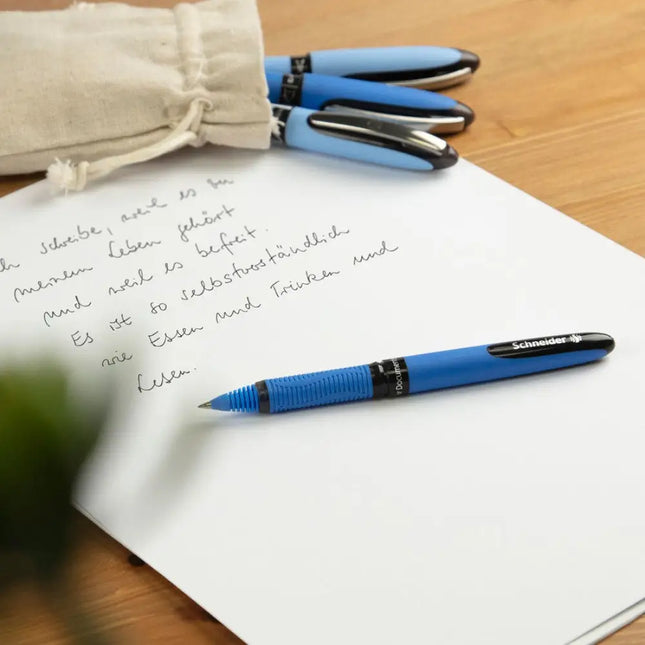 ch schreibe, weil es zu
meinem Leben gehört
und weil es befreit.
Es ist so selbstverständlich
wie Essen und Trinken und
Lesen.
r Document
Schneider